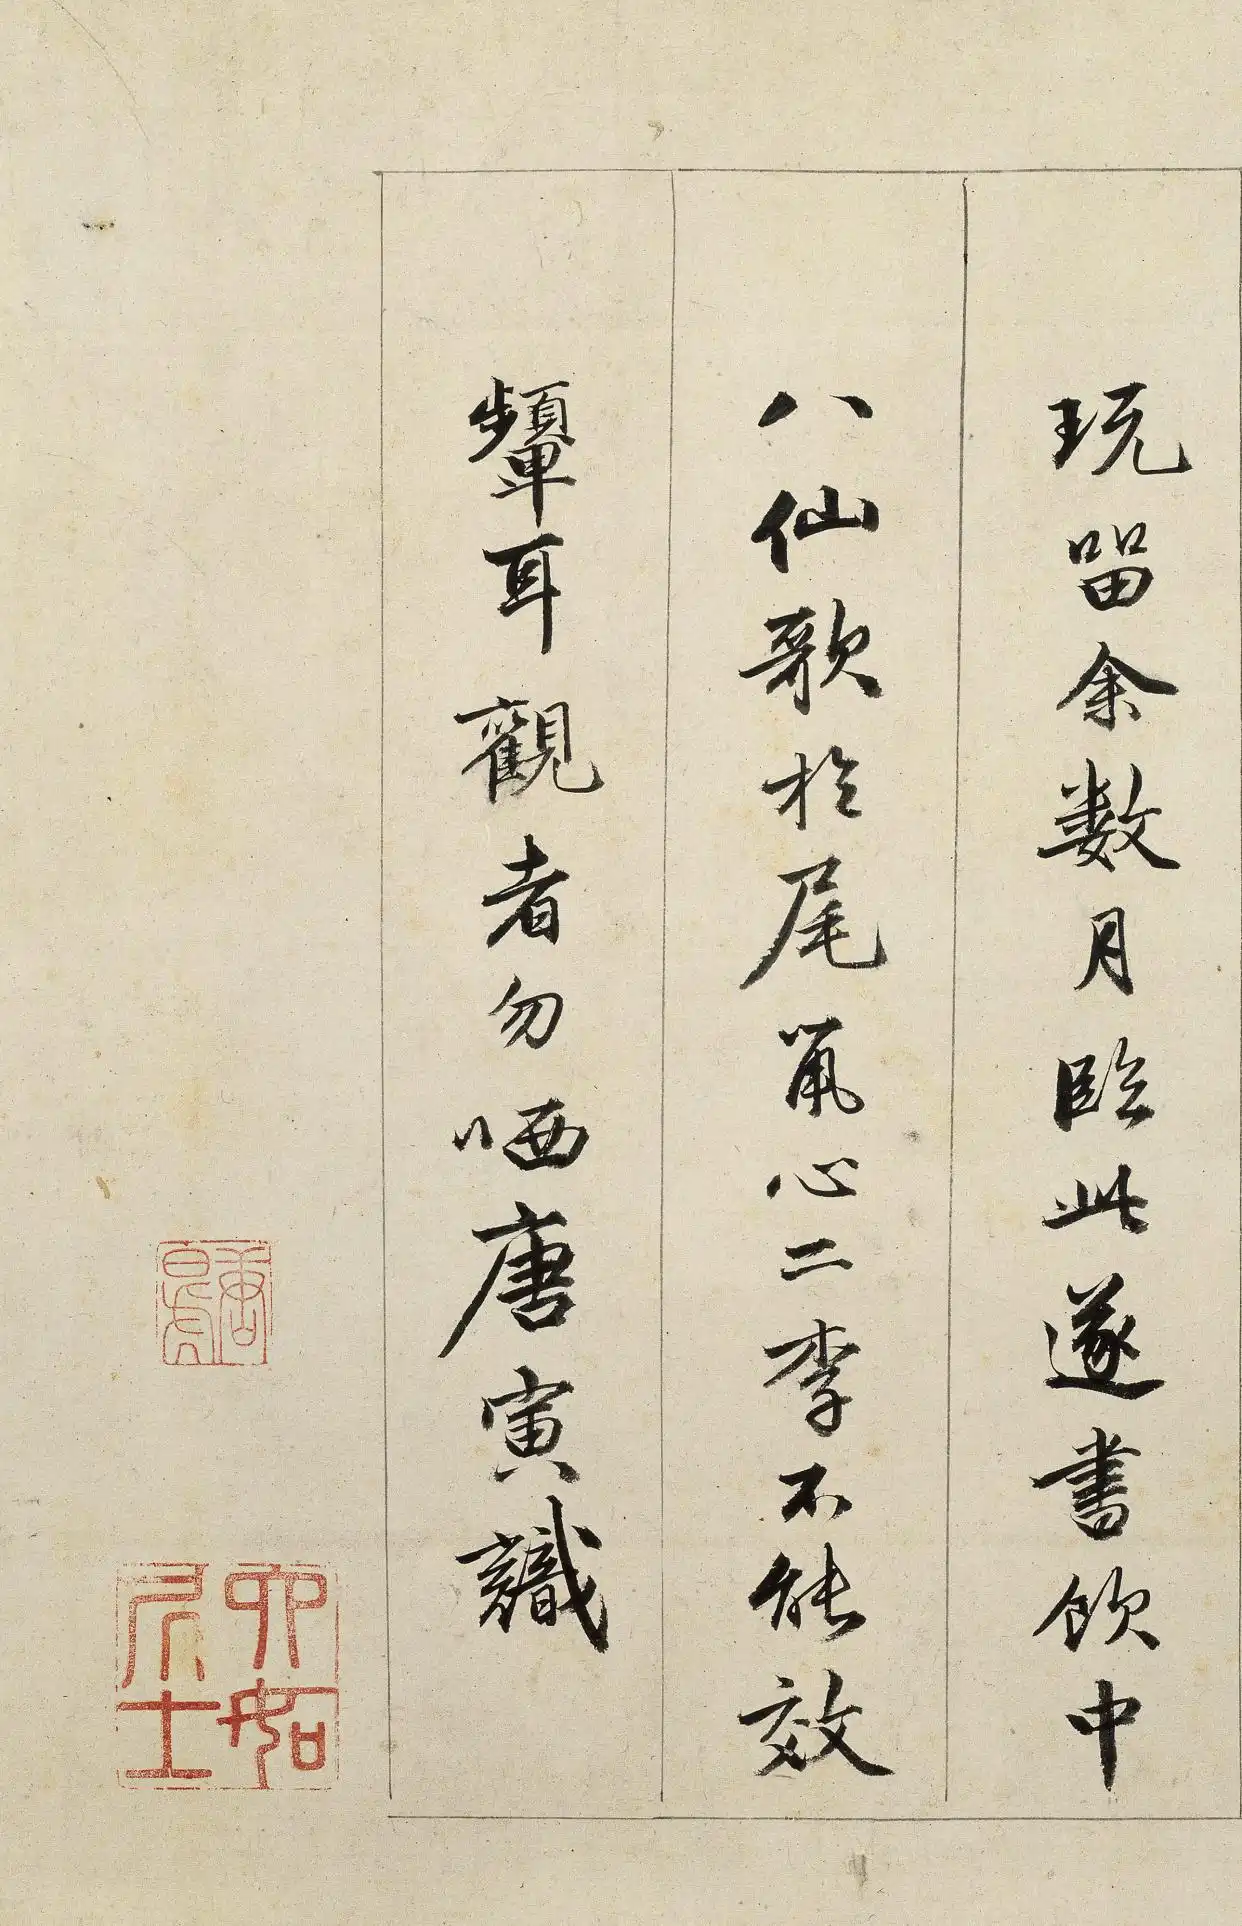 玩留余数月臨此遂書飲中
八仙歌於尾心二李不能效
顰耳觀者勿哂唐寅識
唐白虎
六如居士